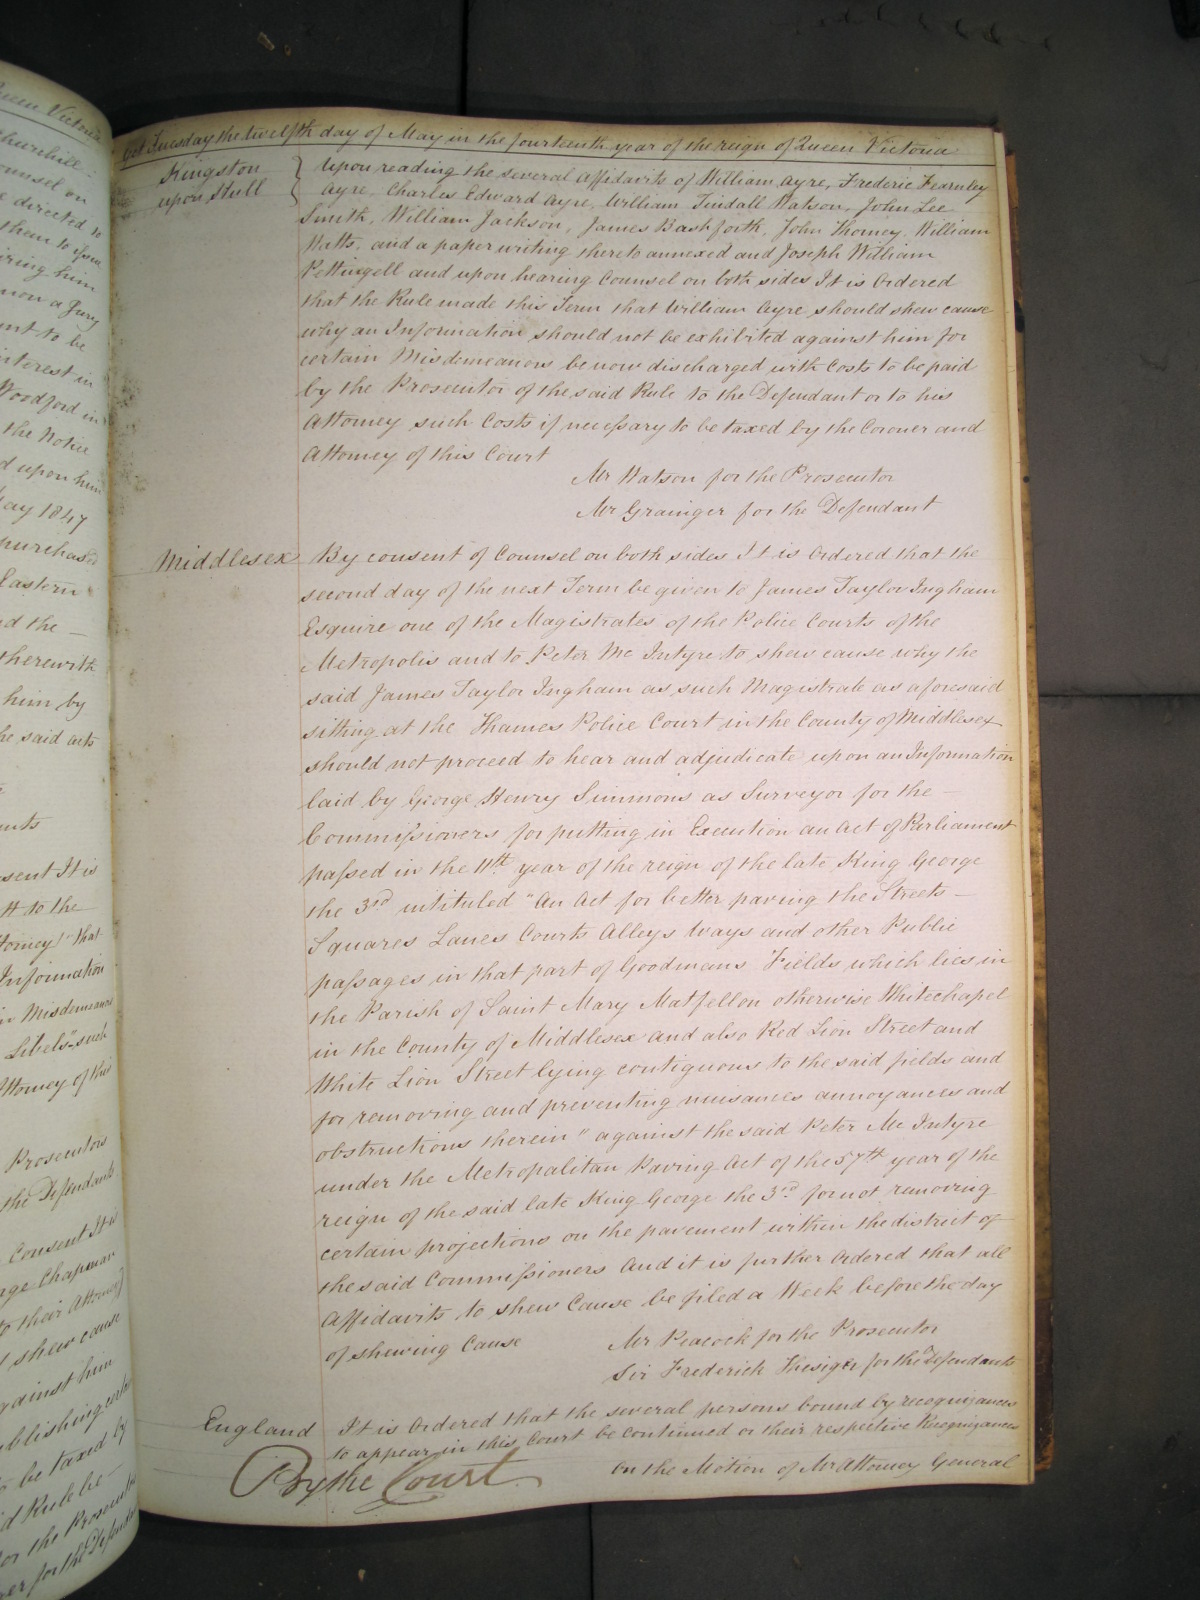 Yet Tuesday the twelfth day of May in the fourteenth year of the reign of Queen Victoria
Kingston upon Hull
Upon reading the several affidavits of William Ayre, Frederic Fearnley
Ayre, Charles Edward Ayre, William Tindall Watson, John Lee
Smith, William Jackson, James Bashforth, John Thorney, William
Watts, and a paper writing thereto annexed and Joseph William
Pettingell and upon hearing Counsel on both sides It is Ordered
that the Rule made this Term that William Ayre should shew cause
why an Information should not be exhibited against him for
certain Misdemeanors be now discharged with Costs to be paid
by the Prosecutor of the said Rule to the Defendant or to his
Attorney such Costs if necessary to be taxed by the Coroner and
Attorney of this Court
Mr Watson for the Prosecutor
Mr Grainger for the Defendant
Middlesex
By consent of Counsel on both sides It is Ordered that the
second day of the next Term be given to James Taylor Ingham
Esquire one of the Magistrates of the Police Courts of the
Metropolis and to Peter Mc Intyre to shew cause why the
said James Taylor Ingham as such Magistrate as aforesaid
sitting at the Thames Police Court in the County of Middlesex
should not proceed to hear and adjudicate upon an Information
laid by George Henry Simmons as Surveyor for the —
Commissioners for putting in Execution an Act of Parliament
passed in the 11th year of the reign of the late King George
the 3rd intituled "An Act for better paving the Streets —
Squares Lanes Courts Alleys Ways and other Public
passages in that part of Goodmans Fields which lies in
the Parish of Saint Mary Matfellon otherwise Whitechapel
in the County of Middlesex and also Red Lion Street and
White Lion Street lying contiguous to the said fields and
for removing and preventing nuisances annoyances and
obstructions therein" against the said Peter Mc Intyre
under the Metropolitan Paving Act of the 57th year of the
reign of the said late King George the 3rd for not removing
certain projections on the pavement within the district of
the said Commissioners And it is further Ordered that all
Affidavits to shew Cause be filed a Week before the day
of shewing Cause
Mr Peacock for the Prosecutor
Sir Frederick Thesiger for the Defendants
England
It is Ordered that the several persons bound by recognizances
to appear in this Court be continued on their respective Recognizances
On the Motion of Mr Attorney General
By the Court